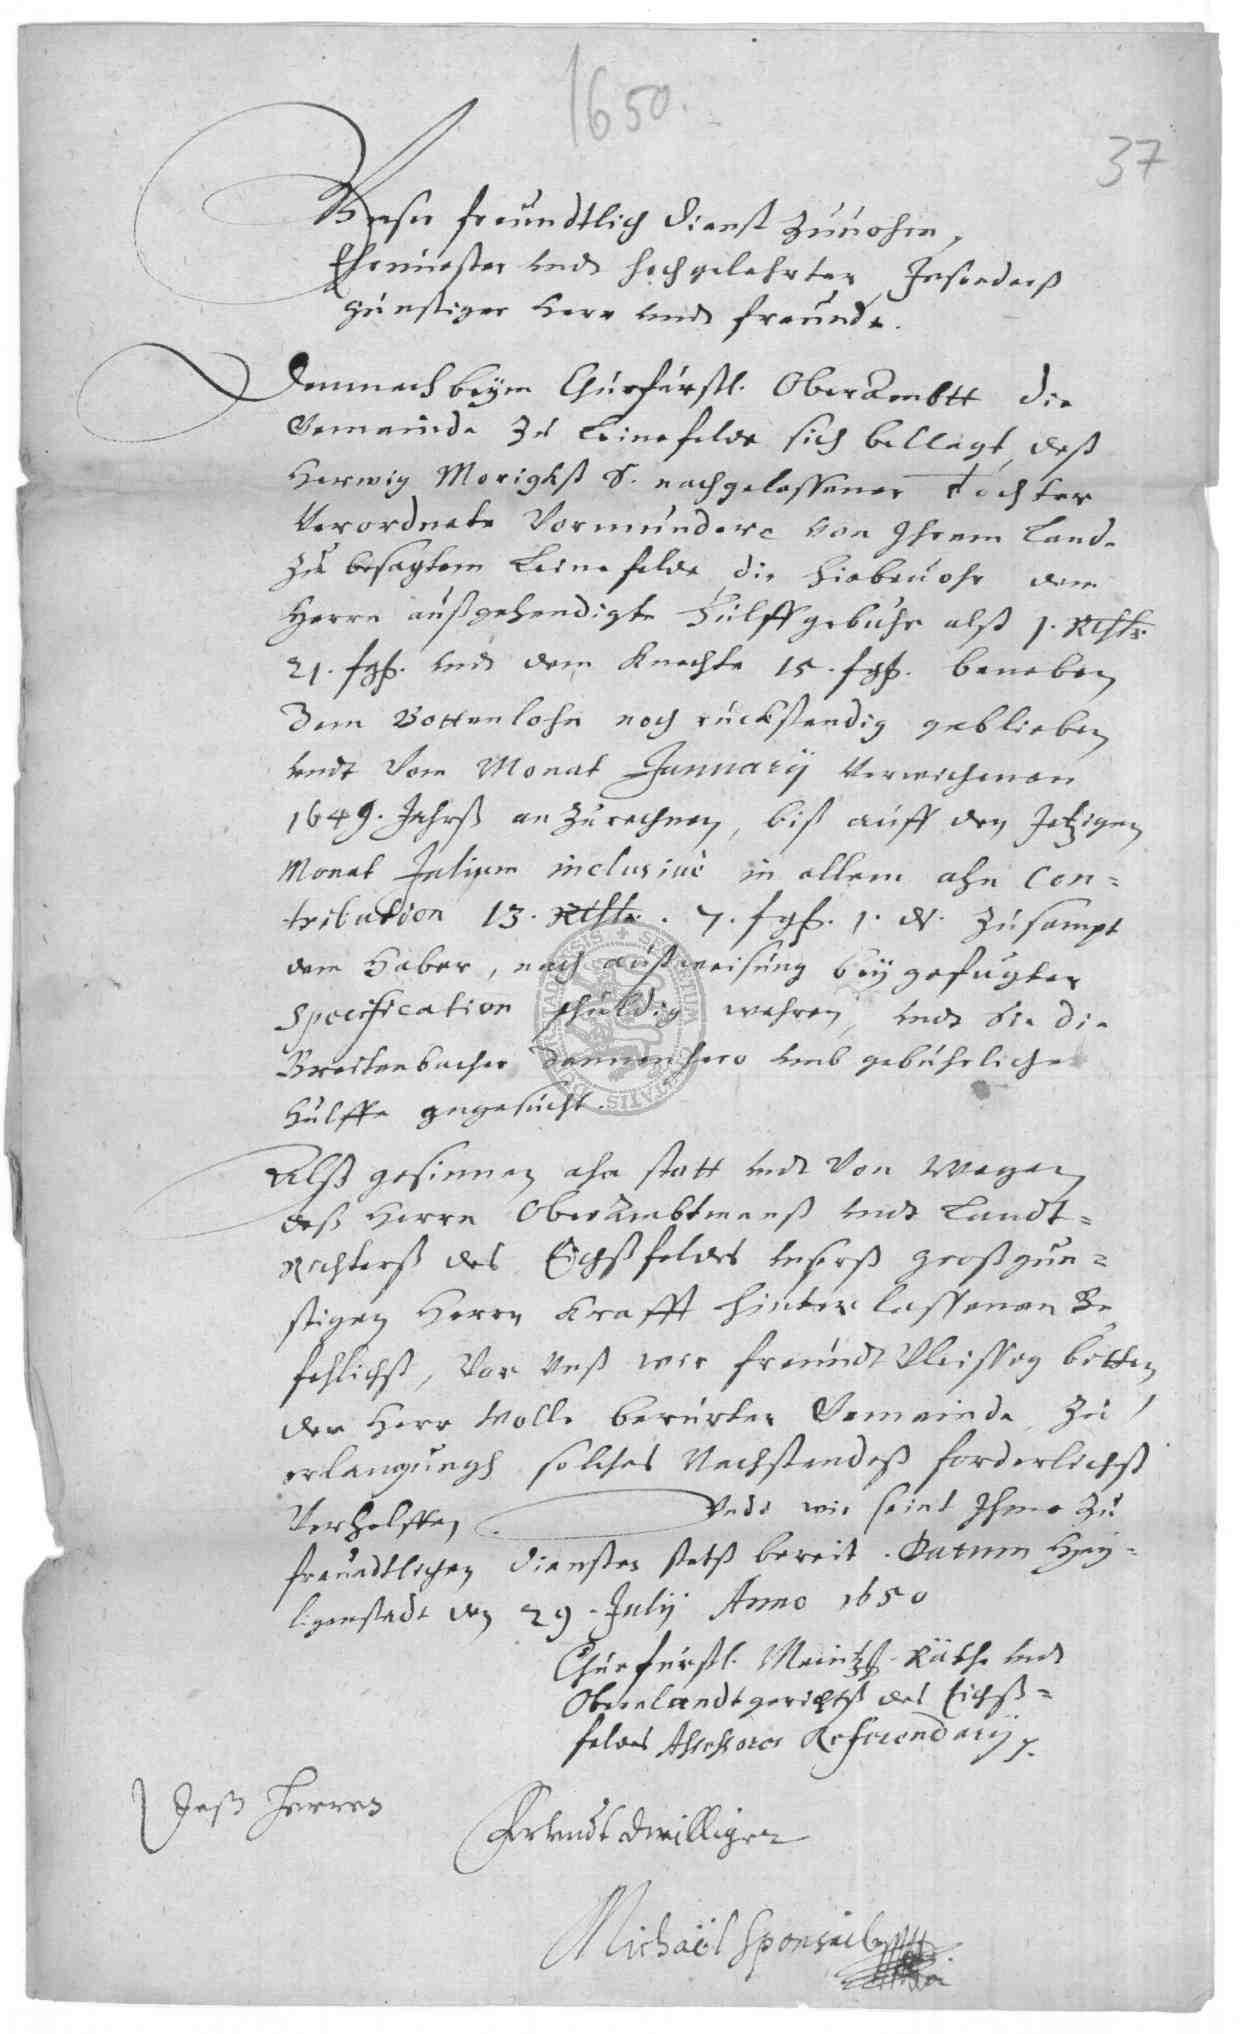 1650.
37
Unser freundtlich dienst zuuohrn,
Ehrnuester undt hochgelahrter Insonderß
günstiger Herr undt freundt.
Demnach beÿm Churfürstl. OberAmbtt die
Gemeinde zu Leinefelde sich beklagt, deß
Herwig Morigkß S. nachgelassener Tochter
Verordnete Vormündere von Ihrem Lande
zu besagtem Leinefelde die hiebeuohr dem
Herrn außgehendigte Hülffgebuhr alß 1. Rthlr.
21. sgß. undt dem Knechte 15. sgß. beneben
dem Bottenlohn noch rückstendig geblieben
undt vom Monat Januarÿ verwichenen
1649. Jahrß an zu rechnen, biß auff den Jetzigen
Monat Julium inclusiuè in allem ahn Con=
tribution 13. Rthlr. 7. sgß. 1. d. zusampt
dem Haber, nach außweisung beÿgefugter
Specification schuldig wehren, undt Sie die
Breitenbacher dannenhero umb gebührliche
Hülffe angesucht.
Alß gesinnen ahn statt undt von wegen
deß Herrn OberAmbtmanß undt Landt=
Richterß des Eichßfeldes unserß großgün=
stigen Herrn Krafft hinterlassenen Be
fehlichß, vor unß wir freundt vleissig bitten
der Herr wolle berürter Gemeinde zu
erlangungh solches Nachstandeß forderlichst
verhelffen. Undt wir seint Ihme zu
freundtlichen diensten stetß bereit. Datum Heÿ=
ligenstadt den 29. Julÿ Anno 1650
Churfürstl. Maintzß. Räthe undt
Oberlandtgerichtß des Eichß=
feldes Assessores Referendarÿ
Deß Herren
Freundtdwilliger
Michaël